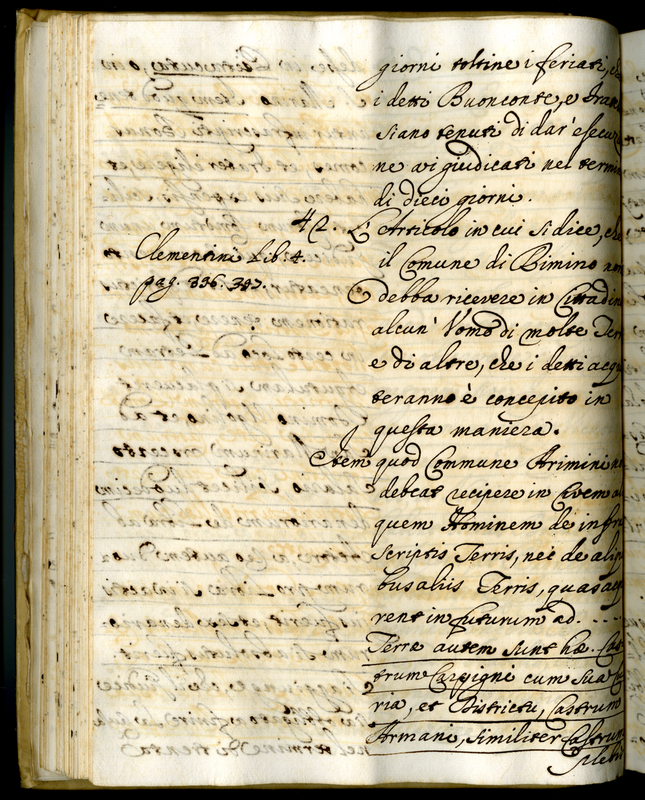 giorni toltine i feriati, e
i detti Buonconte, e
siano tenuti di dar' esecu
ne ai giudicati nel termi
di dieci giorni.
42. L'Articolo in cui si dice, che
Clementini Lib: 4.
pag. 396. 397.
il Comune di Rimino non
debba ricevere in Cittadin
alcun' Uomo di molte Ter
e di altre, che i detti acqu
teranno è concepito in
questa maniera.
Item quod Commune Arimini no
debeat recipere in Civem a
quem Hominem de infra
scriptis Terris, nec de ali
bus aliis Terris, quas acq
rent in futurum ad. . . . .
Terre autem sunt hæ. Cas
trum Carpigni cum sua
ria, et Districtu, Castrum
Armani, similiter Castrum
Pleb